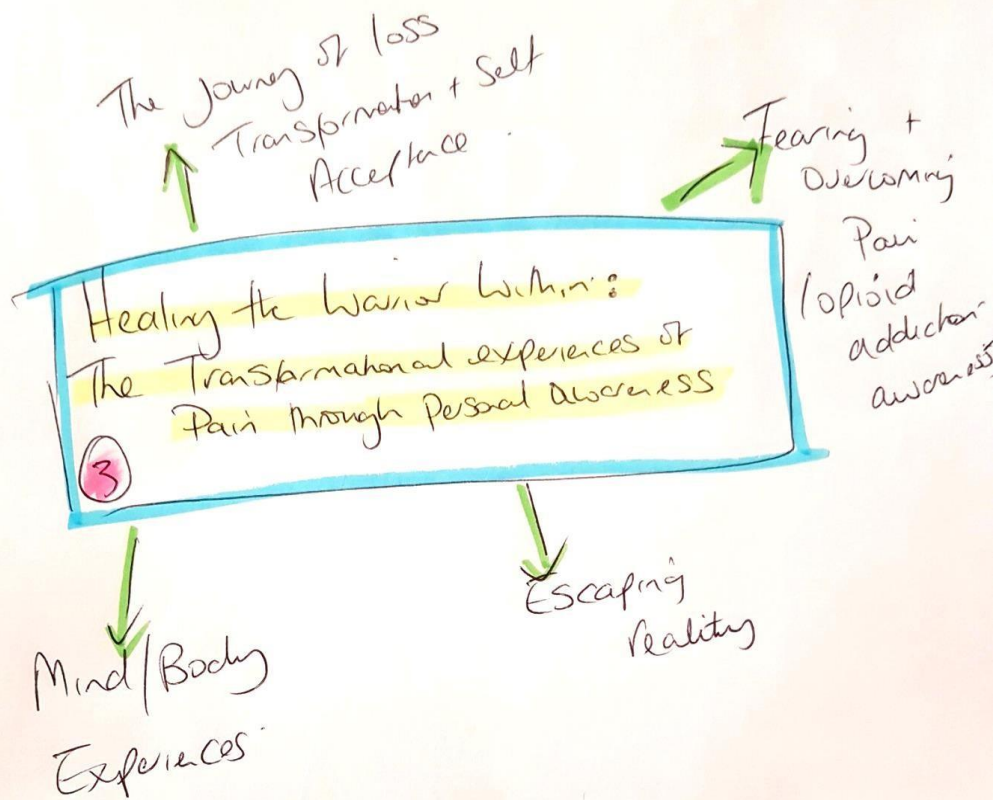 The Journey of loss
Transformation + Self
Acceptance
Fearing +
Overcoming
Pain
/opioid
addiction
awareness
Healing the Warrior Within:
The Transformational experiences of
Pain through personal awareness
3
Escaping
reality
Mind/Body
Experiences